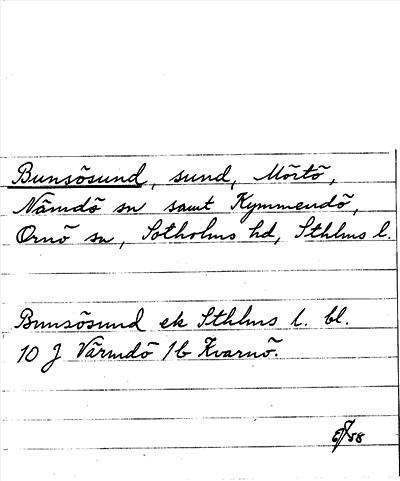 Bunsösund, sund, Mörtö,
Nämdö sn samt Kymmendö,
Ornö sn, Sotholms hd, Sthlms l.
Bunsösund ek Sthlms l. bl.
10 J Värmdö 1b Kvarnö.
58